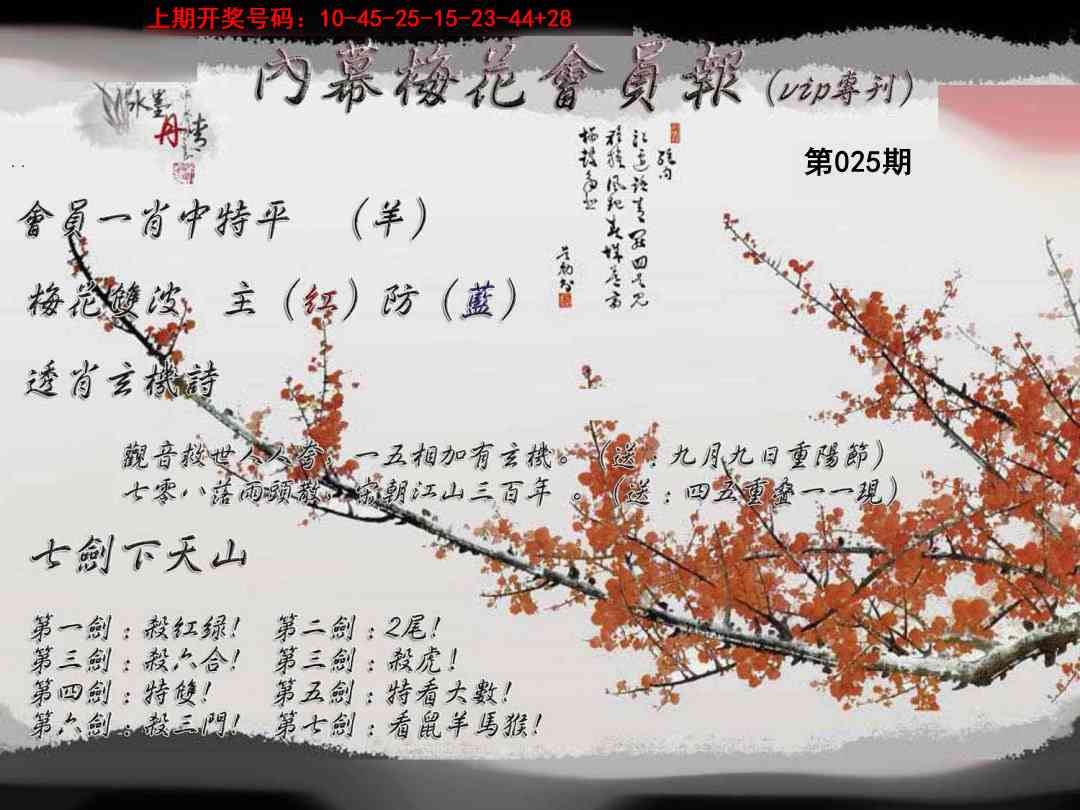 上期开奖号码：10-45-25-15-23-44+28
內幕梅花會員報（vip專刊）
水墨
丹
情
第025期
會員一肖中特平 （羊）
梅花雙波 主（红）防（藍）
透肖玄機詩
觀音救世人人夸；一五相加有玄機。（送：九月九日重陽節）
七零八落兩頭散，宋朝江山三百年 。（送：四五重叠一一現）
七劍下天山
第一劍：殺紅绿！ 第二劍：2尾！
第三劍：殺六合！ 第三劍：殺虎！
第四劍：特雙！ 第五劍：特看大數！
第六劍：殺三門！ 第七劍：看鼠羊馬猴！